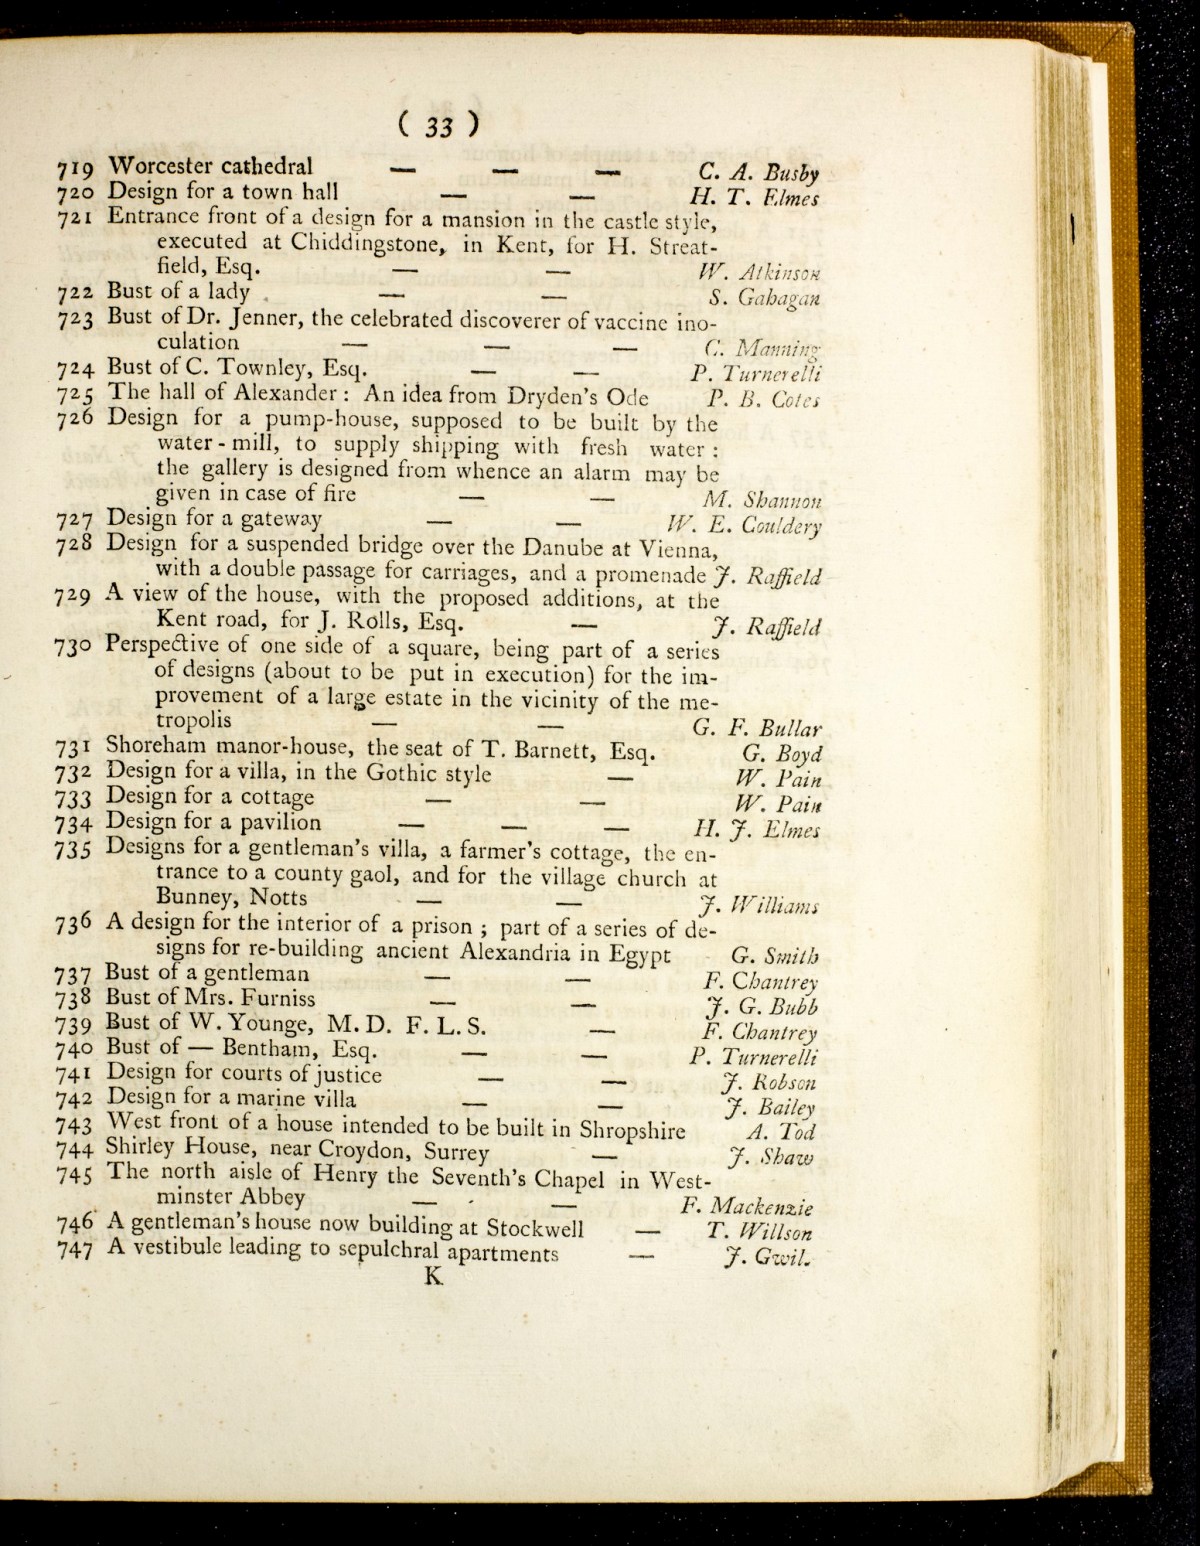 ( 33 )
719 Worcester cathedral — — — C. A. Busby
720 Design for a town hall — — H. T. Elmes
721 Entrance front of a design for a mansion in the castle style,
executed at Chiddingstone, in Kent, for H. Streat-
field, Esq. — — W. Atkinson
722 Bust of a lady — — S. Gahagan
723 Bust of Dr. Jenner, the celebrated discoverer of vaccine ino-
culation — — — C. Manning
724 Bust of C. Townley, Esq. — — P. Turnerelli
725 The hall of Alexander : An idea from Dryden's Ode P. B. Cotes
726 Design for a pump-house, supposed to be built by the
water-mill, to supply shipping with fresh water :
the gallery is designed from whence an alarm may be
given in case of fire — — M. Shannon
727 Design for a gateway — — W. E. Couldery
728 Design for a suspended bridge over the Danube at Vienna,
with a double passage for carriages, and a promenade J. Raffield
729 A view of the house, with the proposed additions, at the
Kent road, for J. Rolls, Esq. — J. Raffield
730 Perspective of one side of a square, being part of a series
of designs (about to be put in execution) for the im-
provement of a large estate in the vicinity of the me-
tropolis — — G. F. Bullar
731 Shoreham manor-house, the seat of T. Barnett, Esq. G. Boyd
732 Design for a villa, in the Gothic style — W. Pain
733 Design for a cottage — — W. Pain
734 Design for a pavilion — — — H. J. Elmes
735 Designs for a gentleman's villa, a farmer's cottage, the en-
trance to a county gaol, and for the village church at
Bunney, Notts — — J. Williams
736 A design for the interior of a prison ; part of a series of de-
signs for re-building ancient Alexandria in Egypt G. Smith
737 Bust of a gentleman — — F. Chantrey
738 Bust of Mrs. Furniss — — J. G. Bubb
739 Bust of W. Younge, M. D. F. L. S. — F. Chantrey
740 Bust of — Bentham, Esq. — — P. Turnerelli
741 Design for courts of justice — — J. Robson
742 Design for a marine villa — — J. Bailey
743 West front of a house intended to be built in Shropshire A. Tod
744 Shirley House, near Croydon, Surrey — J. Shaw
745 The north aisle of Henry the Seventh's Chapel in West-
minster Abbey — — F. Mackenzie
746 A gentleman's house now building at Stockwell — T. Willson
747 A vestibule leading to sepulchral apartments — J. Gwil.
K